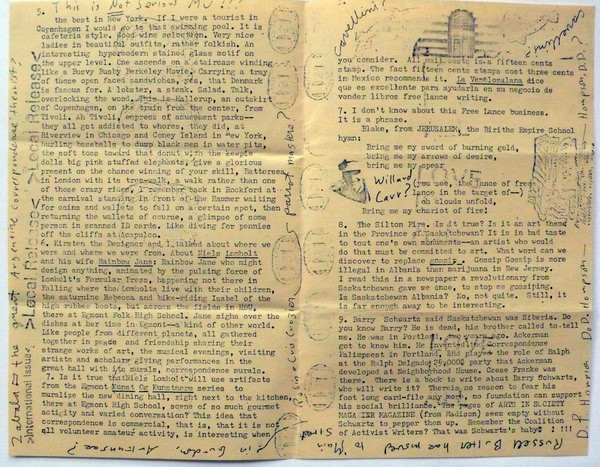 5. This is Not Serious MU!!!
the best in New York. If I were a tourist in
Copenhagen I would go to that swimming pool. It is
cafeteria style. Good wine selection. Very nice
ladies in beautiful outfits, rather folkish. An
interesting hypermodern stained glass motif on
the upper level. One ascends on a staircase winding
like a Busvy Busby Berkeley Movie, Carrying a tray
of those open faced sandwiches, yes, that Denmark
is famous for. A lobster, a steak. Salad. Talk,
overlooking the wood. This is Ballerup, an outskirt
of Copenhagen, on the train from the center, from
Tivoli. Ah Tivoli, empress of amusement parks--
they all got addicted to whores, they did, at
Riverview in Chicago and Coney Island in New York,
hurling baseballs to dump black men in water pits,
the soft toms toward that donut with the kewpie
dolls big pink stuffed elephants, give a glorious
present on the chance winning of your skill, Battersea
in London with its treewalk, a walk rather than one
of those crazy rides, I remember back in Rockford at
the carnival standing in front of the Hammer waiting
for coins and wallets to fall on a certain spot, then
returning the wallets of course, a glimpse of some
person in scanned ID cards. Like diving for pennies
off the cliffs at Acapulco.
6. Kirsten the Designer and I talked about where we
were and where we were from. About Niels Lomholt
and his wife Rainbow Jane: Rainbow Jane who might
design anything, animated by the pulsing force of
Lomholt's Formular Press, happening not there in
Falling where the Lomholts live with their children,
the saturnine Rebecca and bike-riding Isabel of the
high rubber boots, but across the fields in HOU,
there at Egmont Folk High School. Jane sighs over the
dishes at her time in Egmont--a kind of other world.
Like people from different planets, all gathered
together in peace and friendship sharing their
strange works of art, the musical evenings, visiting
artists and scholars giving performances in the
great hall with its murals, correspondence murals.
Is it true that Niels Lomholt will use artifacts
from the Egmont Kunst Og Kunstnere series to
muralize the new dining hall, right next to the kitchen,
there at Egmont High School, scene of so much gourmet
activity and varied conversation? This idea that
correspondence is commercial, that is, that it is not
all volunteer amateur activity, is interesting when
>International Issue<
>Local Release<
>Local Release<
parrot masters?
Robin Crozier
Cavellini?
you consider. All mail costs is a fifteen cents
stamp. The fact fifteen cents stamps cost three cents
in Mexico recommends it. La Venolozalana dice
que es excellente para ayudarla en su negocio de
vonder libros free lance writing.
7. I don't know about this Free Lance business.
It is a phrase.
Blake, from JERUSALEM, the Biriths Empire School
hymn:
Bring me my sword of burning gold,
bring me my arrows of desire,
bring me my spear
Willard
(you use, the lance of free
lance in the target of--)
oh clouds unfold,
Bring me my chariot of fire!
8. The Silton Fire. Is it true? Is it an art themes
in the Province of Saskatchewan? It is in bad taste
to tout one's own monuments--an artist who would
do that must be commited to art. What word can we
discover to replace gossip. Gossip Gossip is more
illegal in Albania than marijuana in New Jersey.
I read this in a newspaper a revolutionary from
Saskatchewan gave me once, to stop me gossiping.
Is Saskatchewan Albania? No, not quite. Still, it
is far enough away to be interesting.
9. Barry Schwartz said Saskatchewan was Siberia. Do
you know Barry? He is dead, his brother called to tell
me. He was in Portland, two years ago. Ackerman
got to know him. He invented the correspondence
Halimpest in Portland, and played the role of Ralph
at the Ralph Delgado party that Ackerman
developed at Neighborhood House. Cseae Franke was
there. There is a book to write about Barry Schwartz,
who will write it? There is no reason to fear his
foot long card-file any more, no foundation can support
his social brilliance. The pages of ARTS IN SOCIETY
MAGAZINE (from Madison) seem empty without
Schwartz to pepper them up. Remember the Coalition
of Activist Writers? That was Schwartz' baby! !!!
Russell Butler has moved to Main Street
D.P. Hompson